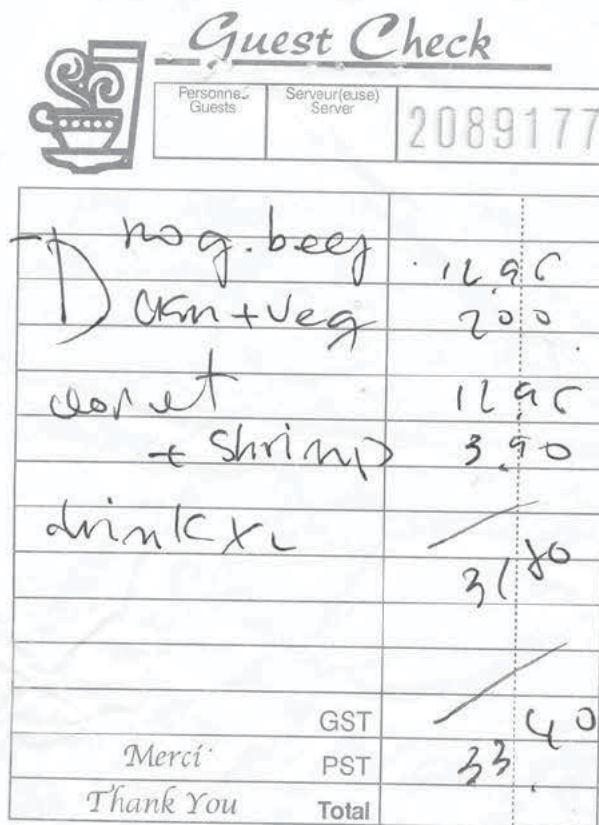 Guest Check
Personnes
Guests
Serveur(euse)
Server
2089177
no g. beef 12.95
ckn + veg 2 00
12 95
+ Shrimp 3.90
drink
31 80
GST
40
Merci PST 33
Thank You Total